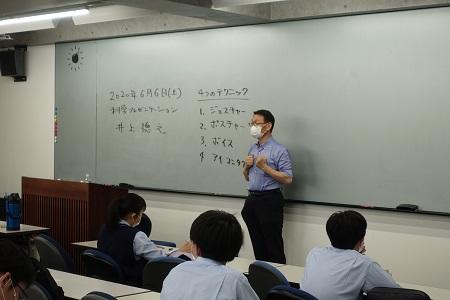 2020年6月6日(土)
科学プレゼンテーション
井上 徳之
4つのテクニック
1. ジェスチャー
2. ポスチャー
3. ボイス
4 アイコンタク